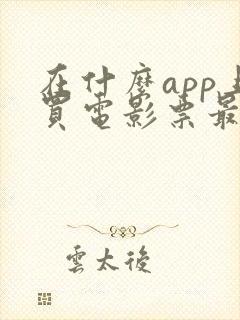 在什麼app上
買電影票最
雲太後